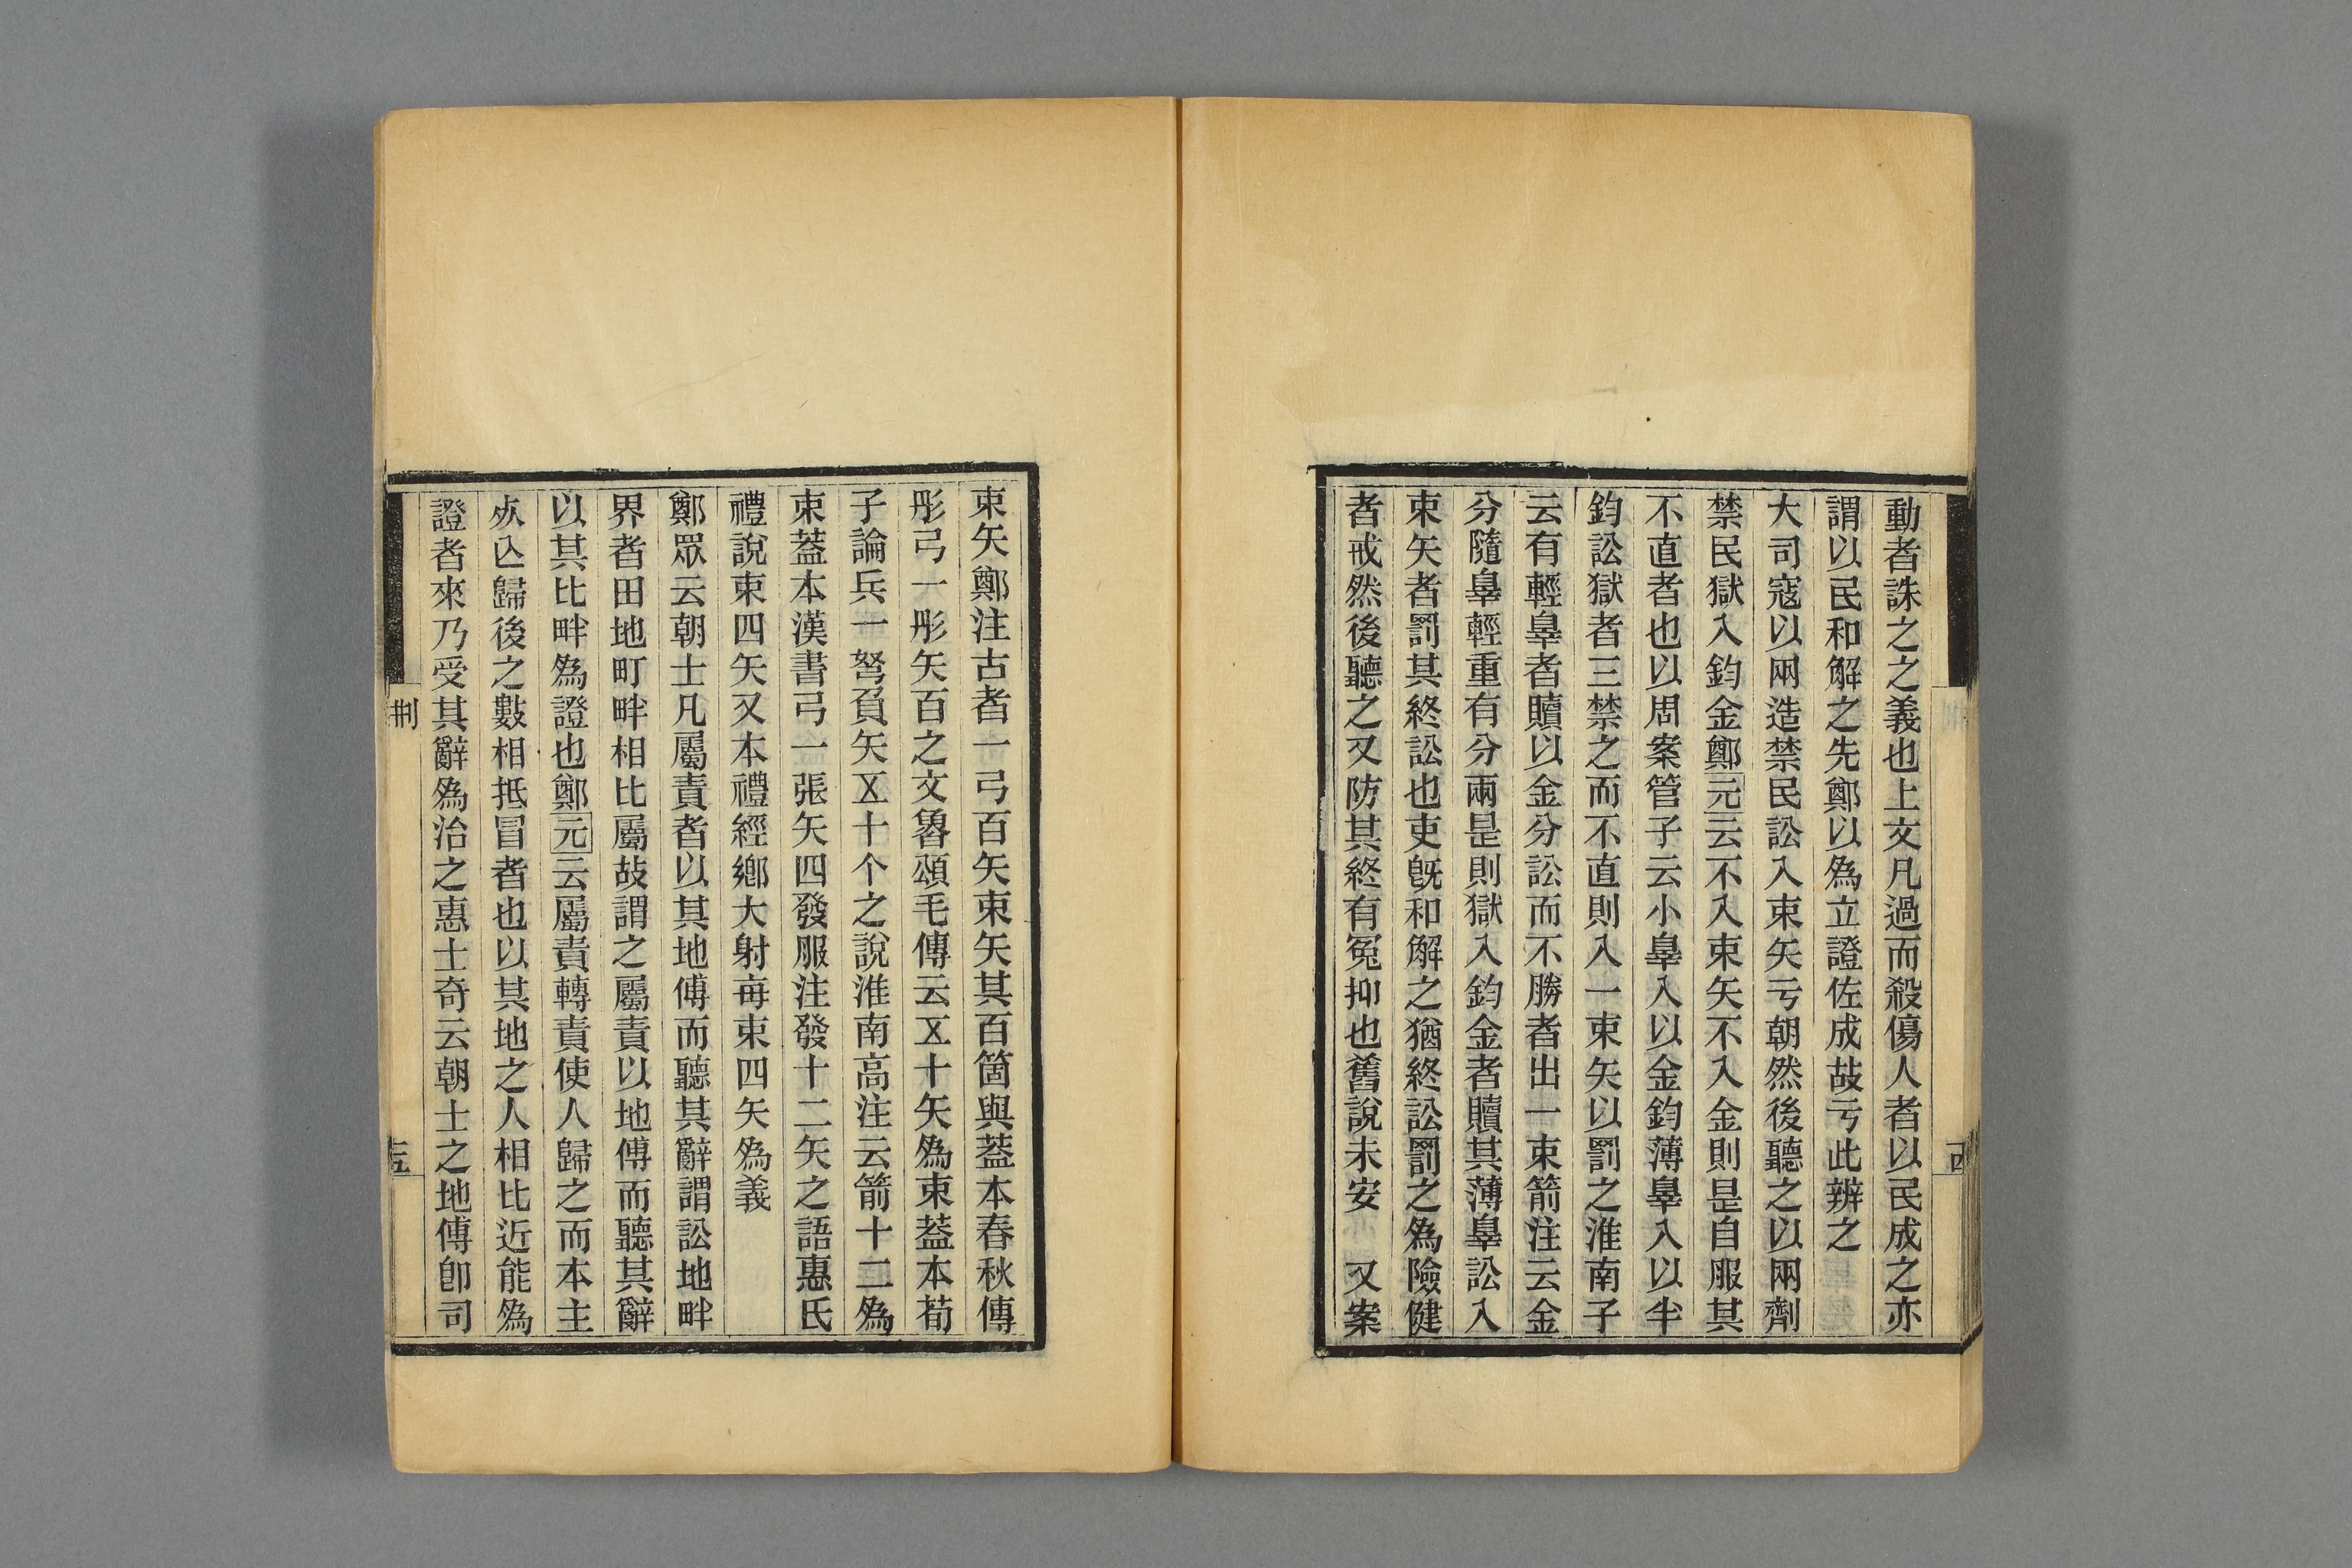 動者誅之之義也上文凡過而殺傷人者以民成之亦
謂以民和解之先鄭以為立證佐成故亏此辨之
大司寇以兩造禁民訟入束矢亏朝然後聽之以兩劑
禁民獄入鈞金鄭元云不入束矢不入金則是自服其
不直者也以周案管子云小辠入以金鈞薄辠入以半
鈞訟獄者三禁之而不直則入一束矢以罰之淮南子
云有輕辠者贖以金分訟而不勝者出一束箭注云金
分隨辠輕重有分兩是則獄入鈞金者贖其薄辠訟入
束矢者罰其終訟也吏旣和解之猶終訟罰之為險健
者戒然後聽之又防其終有冤抑也舊說未安　又案
束矢鄭注古者一弓百矢束矢其百箇與葢本春秋傳
彤弓一彤矢百之文魯頌毛傳云㐅十矢為束葢本荀
子論兵一弩負矢㐅十个之說淮南高注云箭十二為
束葢本漢書弓一張矢四發服注發十二矢之語惠氏
禮說束四矢又本禮經鄉大射每束四矢為義
鄭眾云朝士凡屬責者以其地傅而聽其辭謂訟地畔
界者田地町畔相比屬故謂之屬責以地傅而聽其辭
以其比畔為證也鄭元云屬責轉責使人歸之而本主
死亾歸後之數相抵冒者也以其地之人相比近能為
證者來乃受其辭為治之惠士奇云朝士之地傅卽司